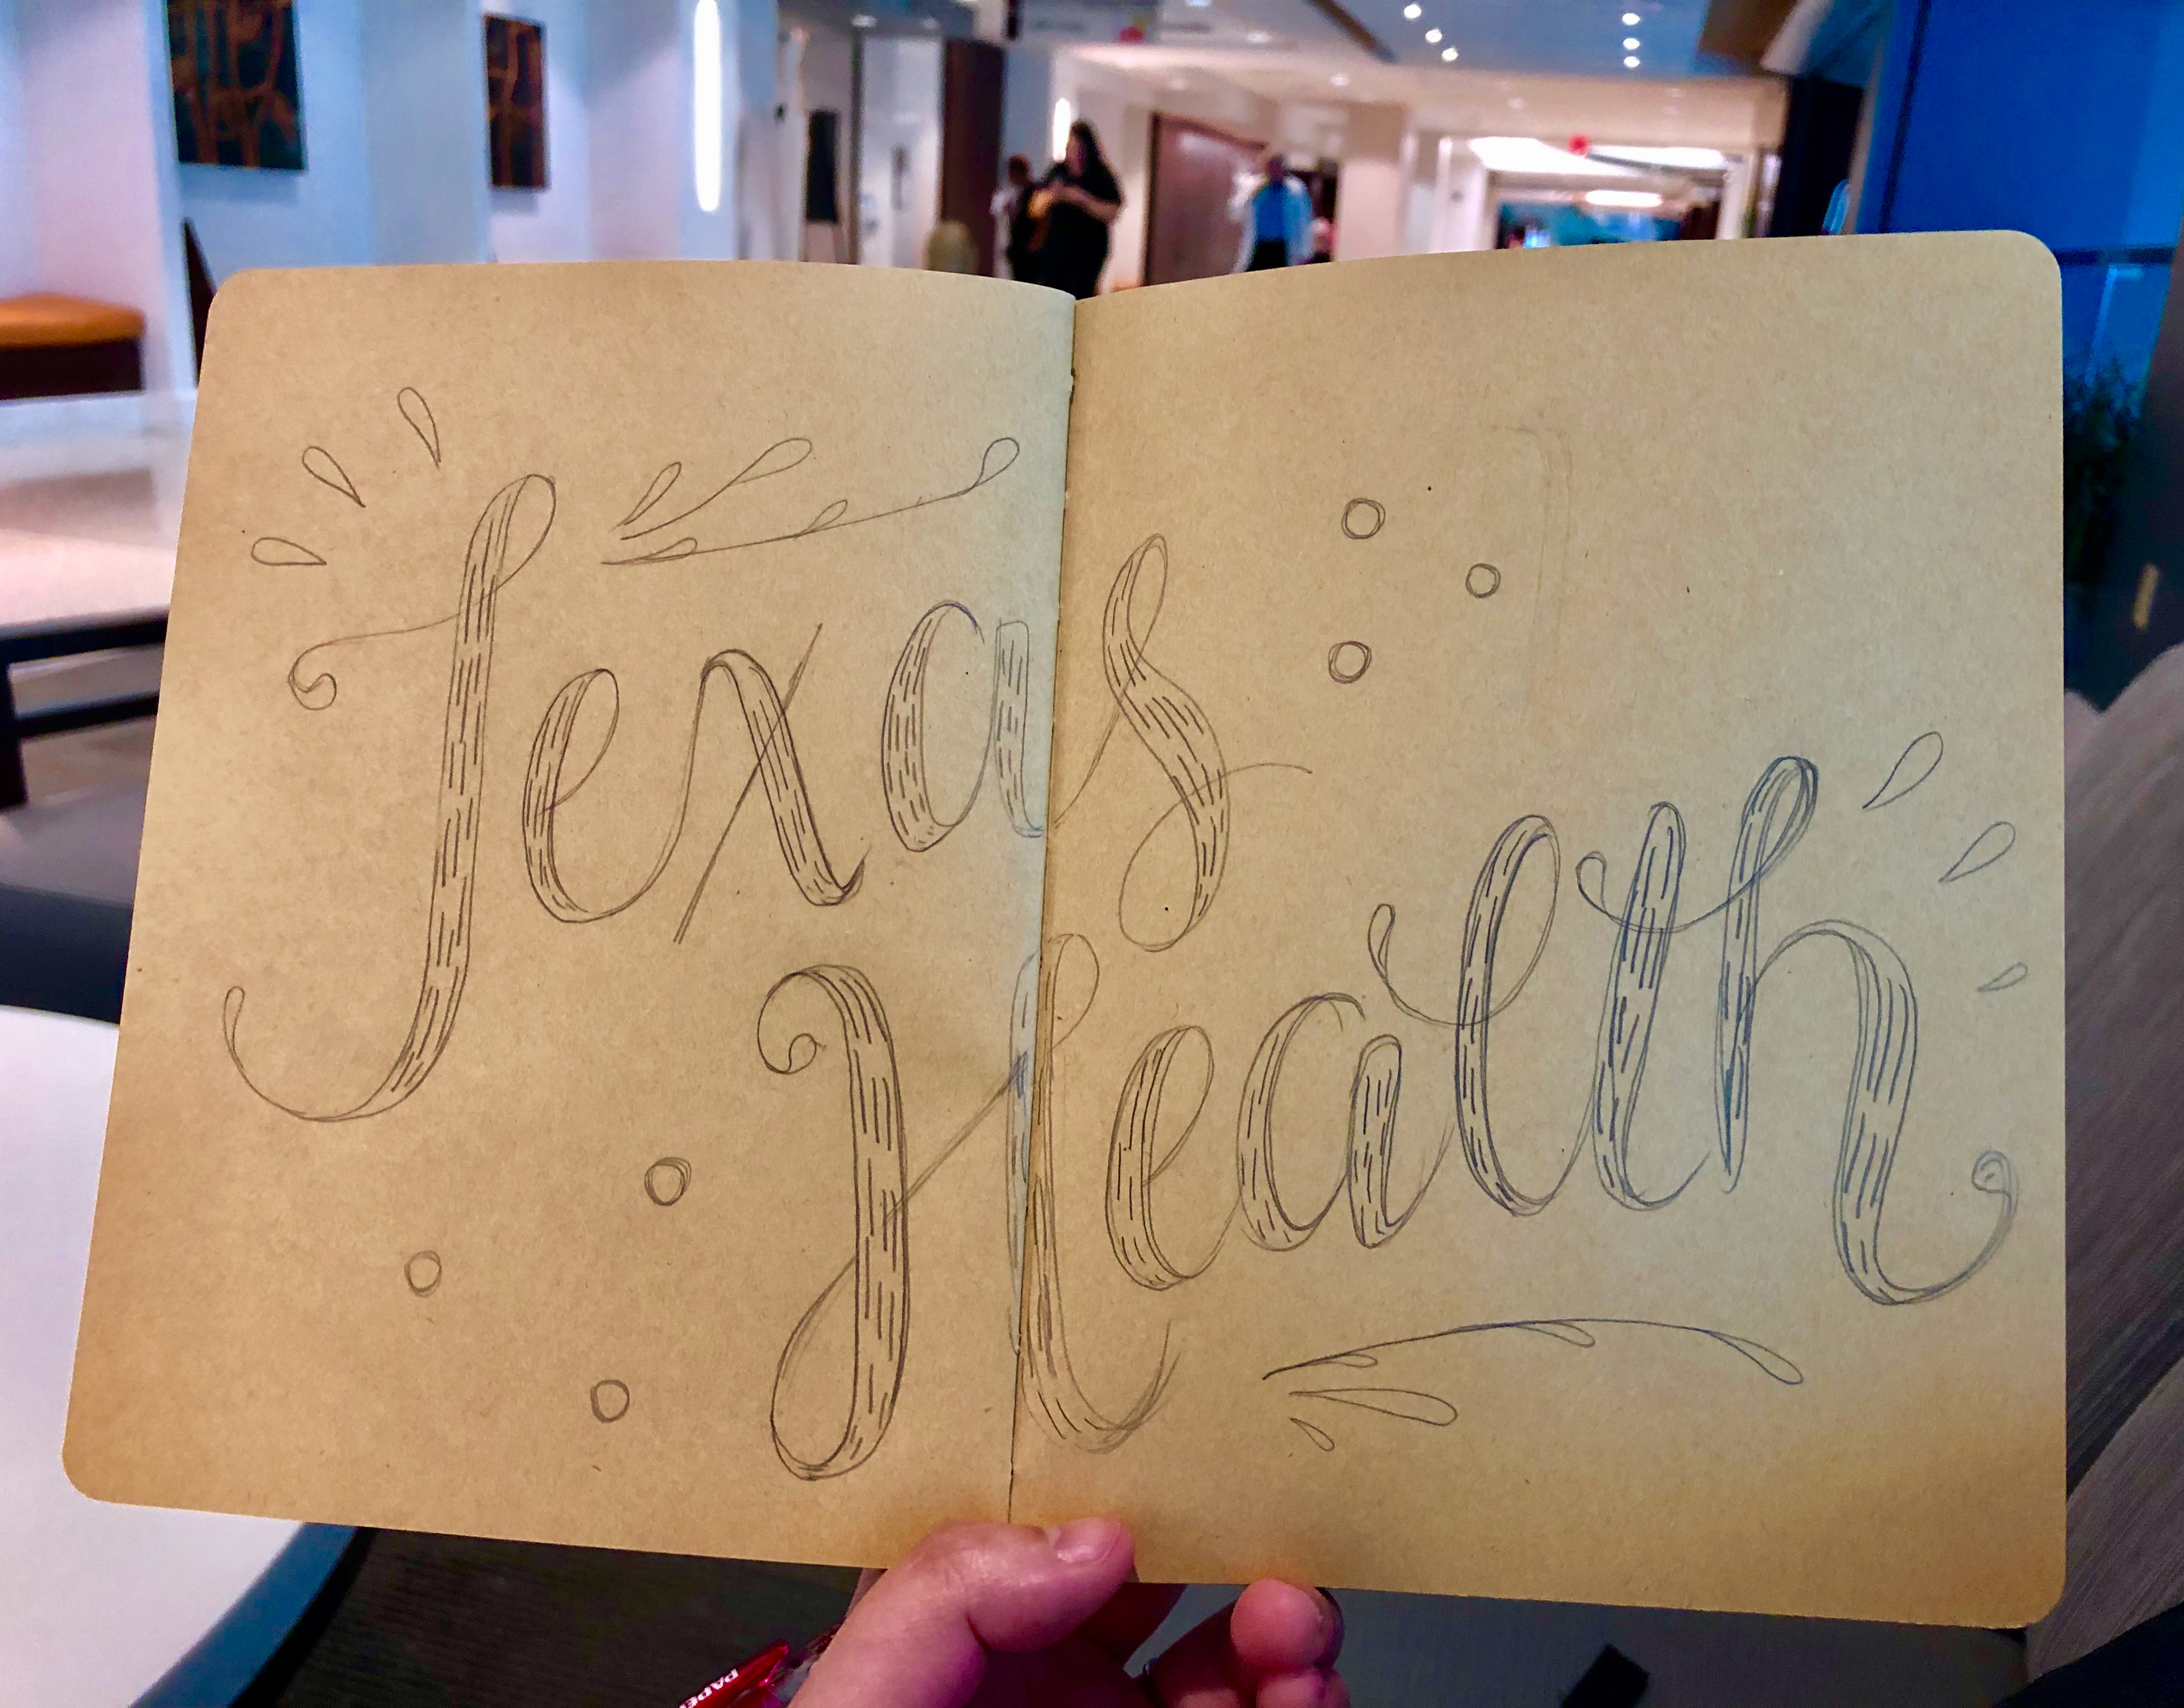 Texas
Health
PAPER